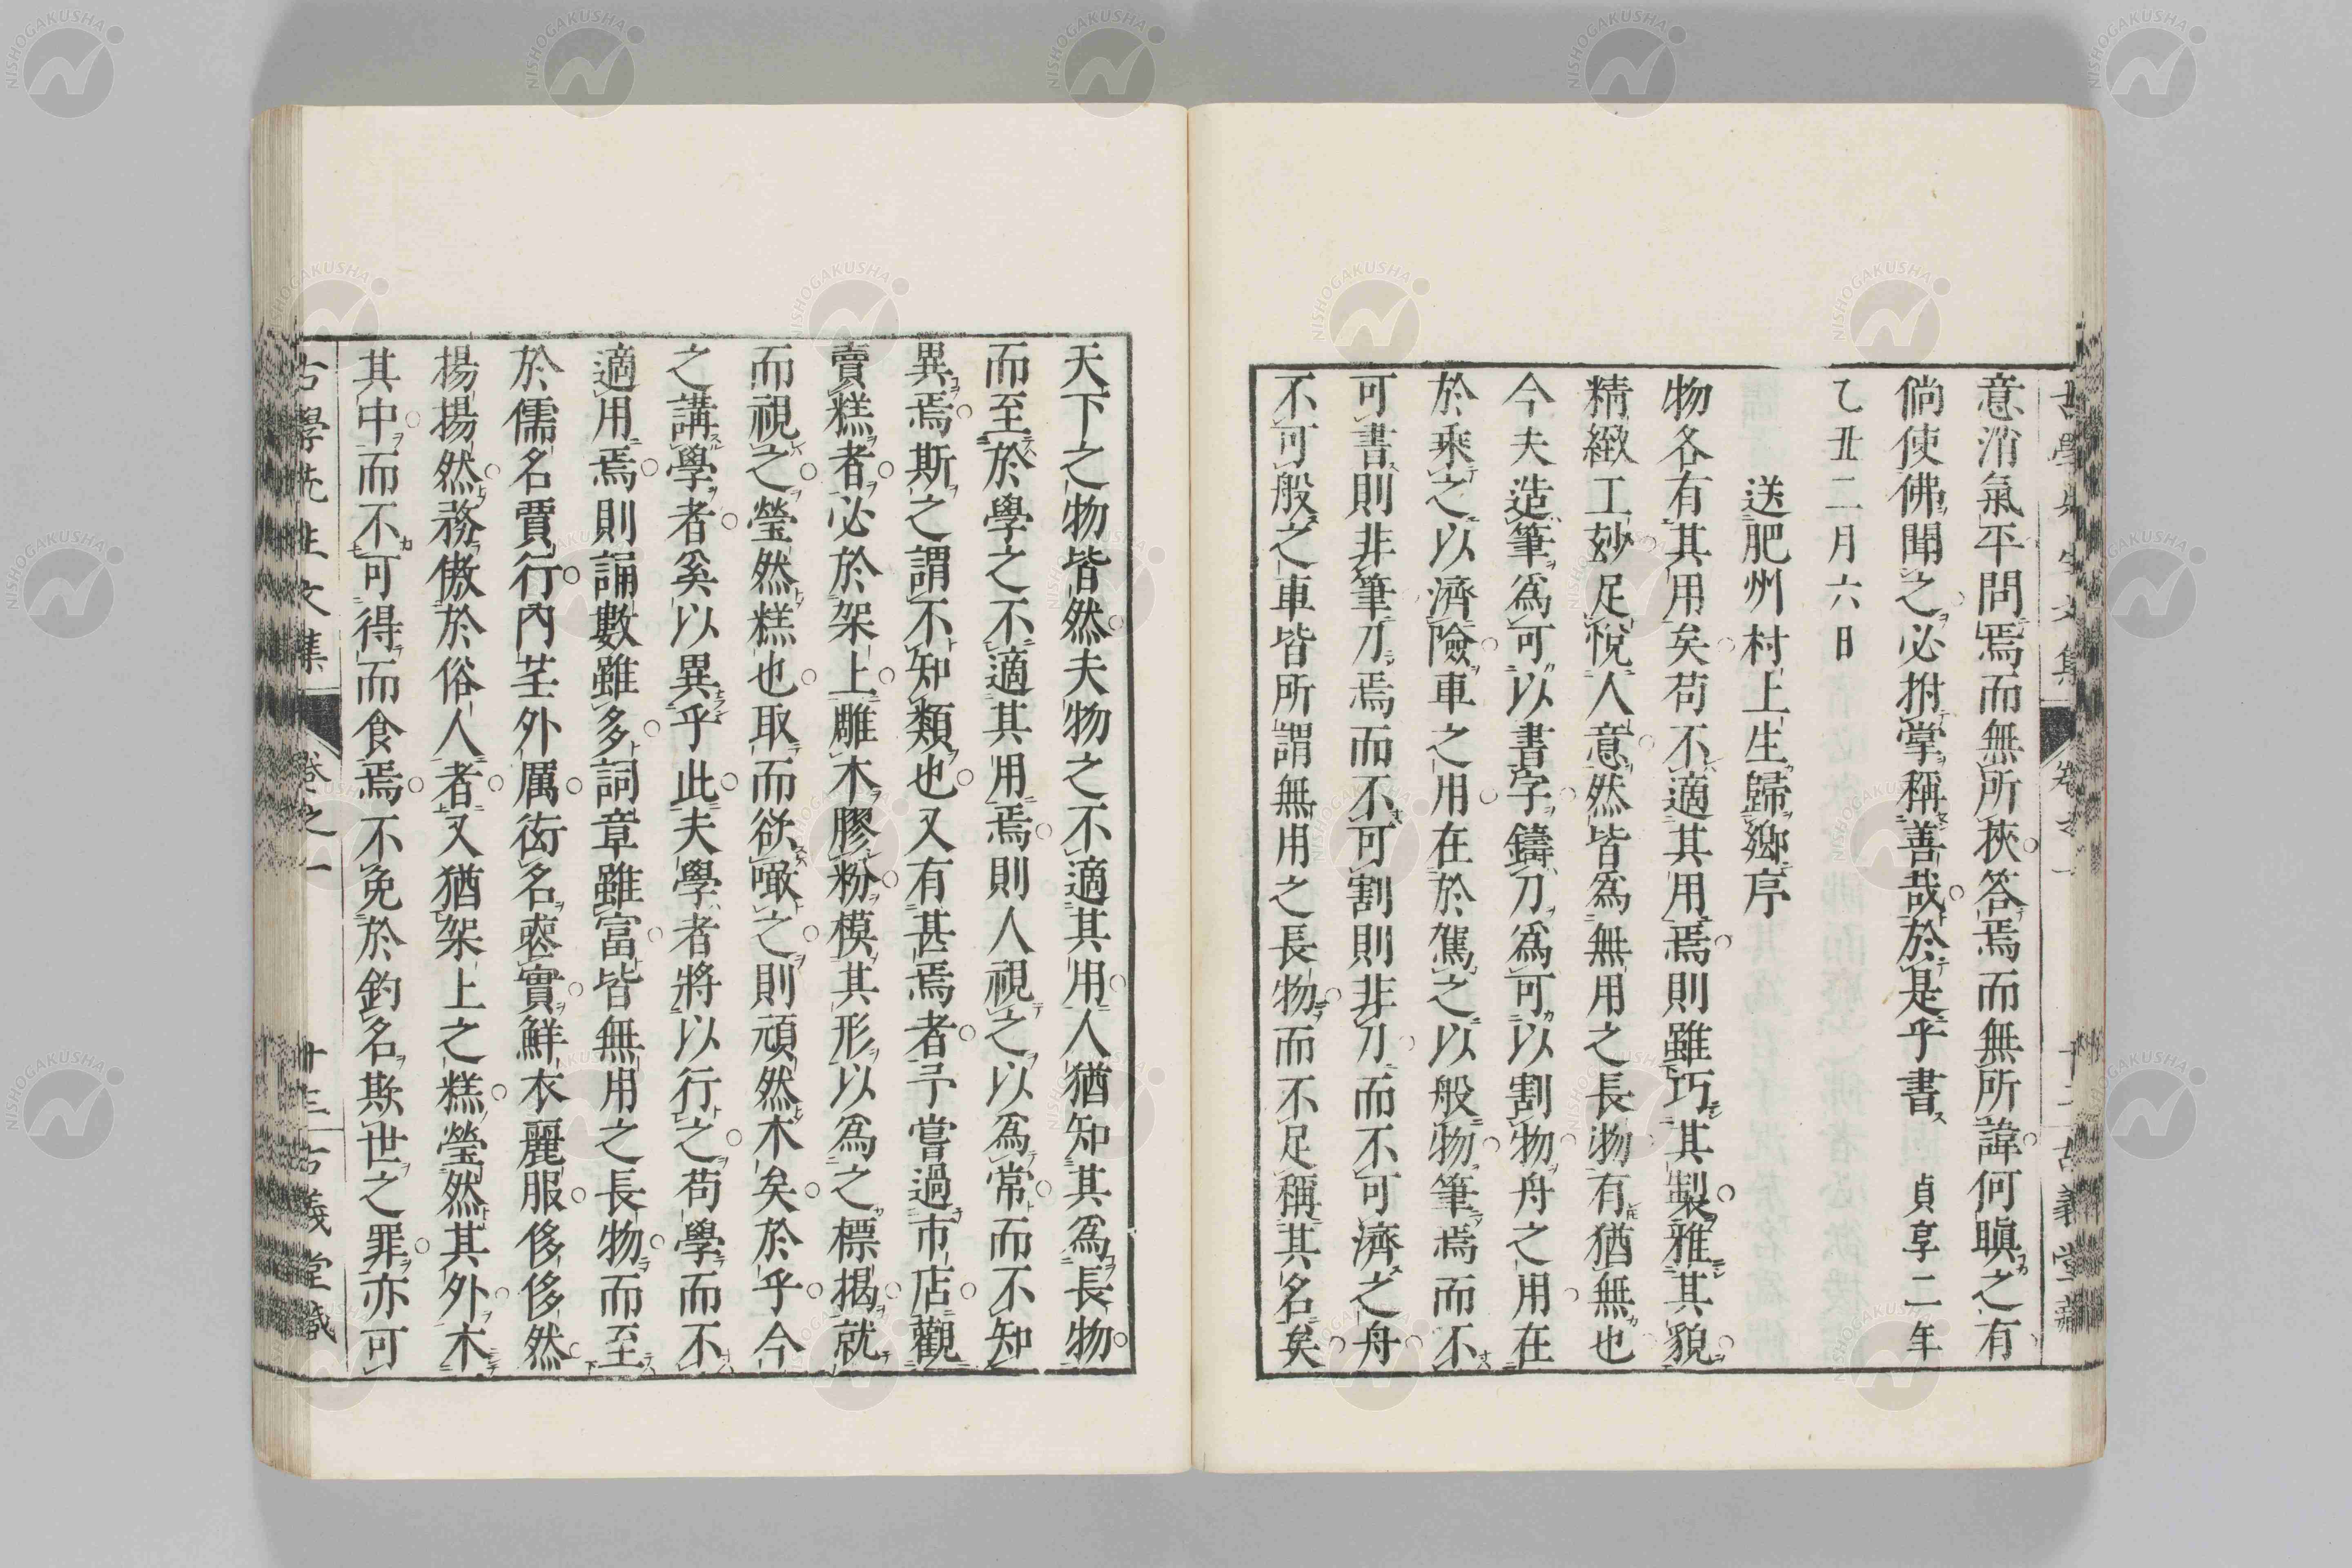 意消氣平問焉而無所挾答焉而無所諱何嗔之有
倘使佛聞之必拊掌稱善哉於是乎書 貞享二年
乙丑二月六日
送肥州村上生歸鄉序
物各有其用矣苟不適其用焉則雖巧其製雅其貌
精緻工玅足悅人意然皆爲無用之長物有猶無也
今夫造筆爲可以書字鑄刀爲可以割物舟之用在
於乘之以濟險車之用在於駕之以般物筆焉而不
可書則非筆刀焉而不可割則非刀而不可濟之舟
不可般之車皆所謂無用之長物而不足稱其名矣
天下之物皆然夫物之不適其用人猶知其爲長物
而至於學之不適其用焉則人視之以為常而不知
異焉斯之謂不知類也又有甚焉者予嘗過市店觀
賣糕者必於架上雕木膠粉模其形以為之標揭就
而視之瑩然糕也取而欲噉之則頑然木矣於乎今
之講學者奚以異乎此夫學者將以行之苟學而不
適用焉則誦數雖多詞章雖富皆無用之長物而至
於儒名賈行內荏外厲衒名蠹實鮮衣麗服侈侈然
揚揚然務傲於俗人者又猶架上之糕瑩然其外木
其中而不可得而食焉不免於釣名欺世之罪亦可
古學先生文集 卷之一 十三 古義堂藏
NISHOGAKUSHA